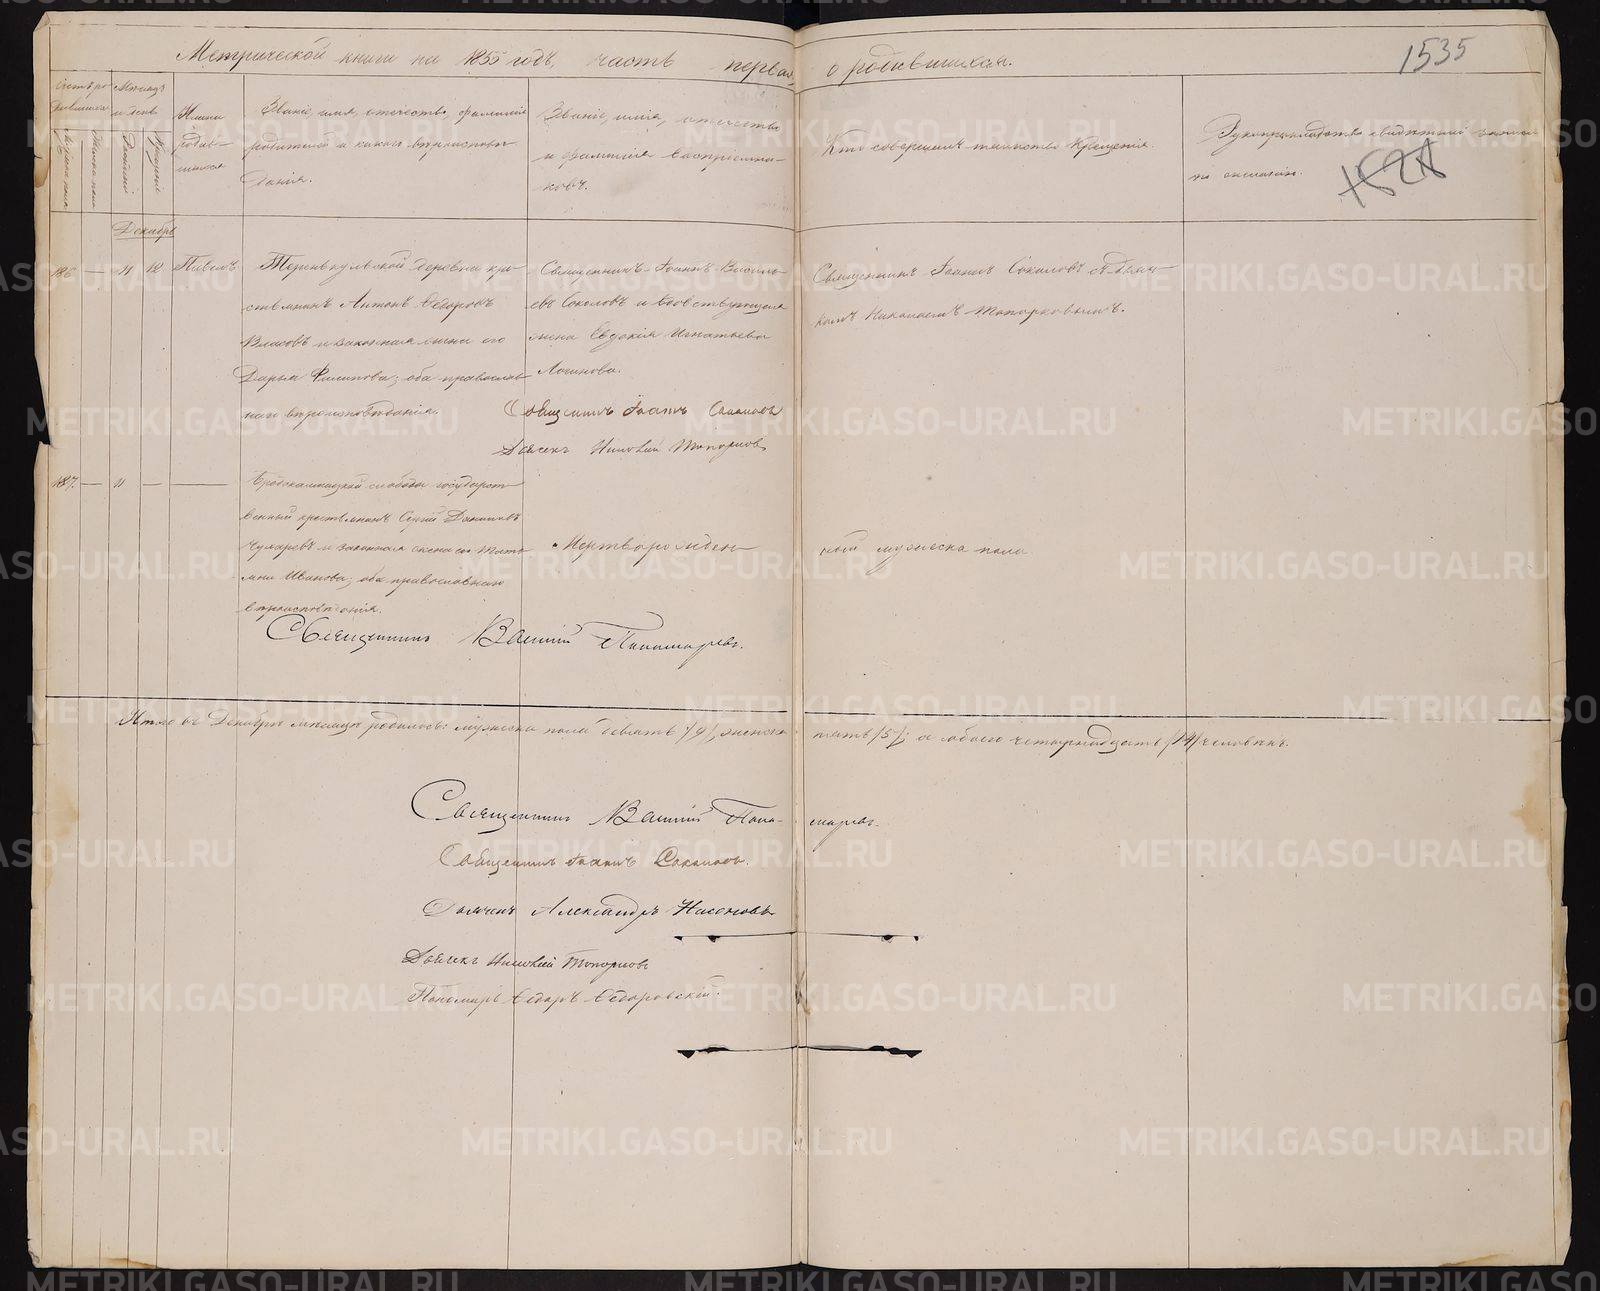 Метрической книги на 1855 годъ, часть первая о родившихся.
1535
Счетъ родившихся
Мужеска пола
Женска пола
Мѣсяцъ и день
Рожденія
Крещенія
Имена
родив-
шихся
Званіе, имя, отчество, фамилія
родителей и какого вѣроисповѣ-
данія.
Званіе, имя, отчество
и фамилія воспріемни-
ковъ.
Кто совершалъ таинство Крещенія.
Рукоприкладство свидѣтелей записи
по желанію.
1528
Декабрь
186 — 11 12 Павелъ
деревни кре-
стьянинъ Антонъ Ѳедоровъ
Власовъ и законная жена его
Дарья Филипова; оба православ-
наго вѣроисповѣданія.
Священникъ Іоаннъ Василь-
евъ Соколовъ и вдовствующая
жена Евдокія Игнатьева
Логинова.
Священникъ Іоаннъ Соколовъ съ Дьяч-
комъ Николаемъ Топорковымъ.
Священникъ Іоаннъ Соколовъ
Дьячекъ Николай Топорковъ
187. — 11 — —
Бродокалмацкой слободы государст-
венный крестьянинъ Сергій Даниловъ
и законная жена его Тать-
яна Иванова; оба православнаго
вѣроисповѣданія.
Мертворожден
ный мужеска пола
Священникъ Василій Пономаревъ.
Итого въ Декабрѣ мѣсяцѣ родилось: мужеска пола девять /9/, женска пять /5/; а обоего четырнадцать /14/ человѣкъ.
Священникъ Василій Поно- маревъ.
Священникъ Іоаннъ Соколовъ.
Дьяконъ Александръ Насоновъ
Дьячекъ Николай Топорковъ
Пономарь Ѳедоръ Ѳедоровскій.
METRIKI.GASO-URAL.RU